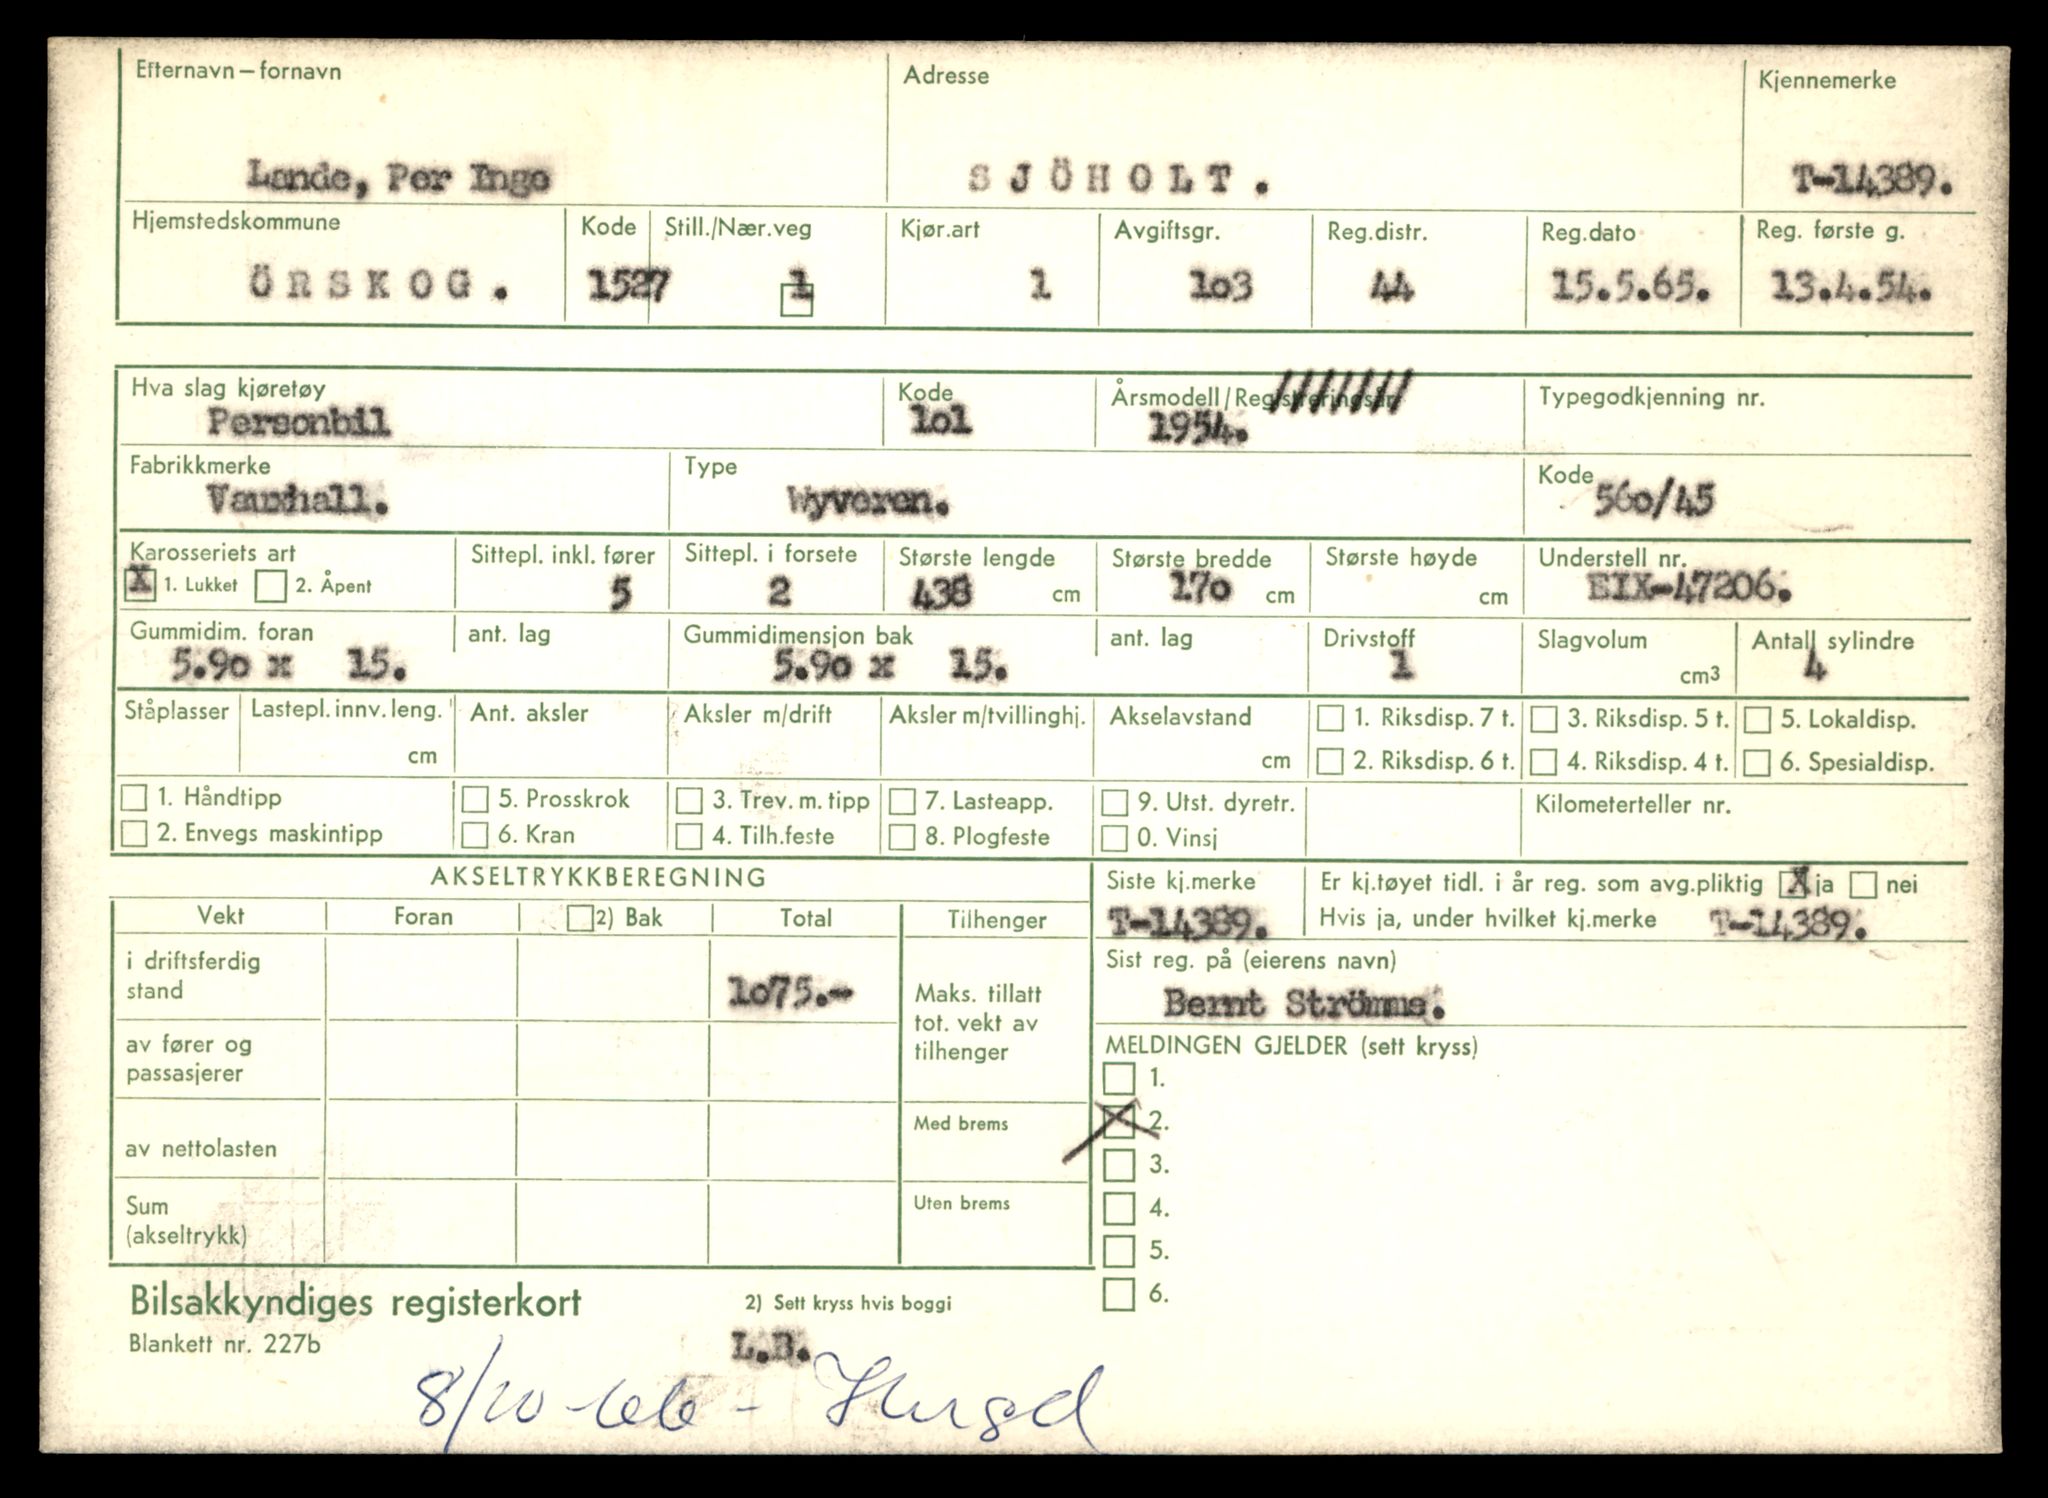 Efternavn – fornavn Adresse Kjennemerke
Lande, Per Inge SJÖHOLT. T-14389.
Hjemstedskommune Kode Still./Nær.veg Kjør.art Avgiftsgr. Reg.distr. Reg.dato Reg. første g.
ÖRSKOG. 1527 1 1 1o3 44 15.5.65. 13.4.54.
Hva slag kjøretøy Kode Årsmodell/Registreringsår Typegodkjenning nr.
Personbil 1o1 1954.
Fabrikkmerke Type Kode
Vauxhall. Wyveren. 56o/45
Karosseriets art Sittepl. inkl. fører Sittepl. i forsete Største lengde Største bredde Største høyde Understell nr.
X 1. Lukket 2. Åpent 5 2 438 cm 17o cm cm EIX-47206.
Gummidim. foran ant. lag Gummidimensjon bak ant. lag Drivstoff Slagvolum Antall sylindre
5.9o x 15. 5.9o x 15. 1 cm3 4
Ståplasser Lastepl. innv. leng. Ant. aksler Aksler m/drift Aksler m/tvillinghj. Akselavstand 1. Riksdisp. 7 t. 3. Riksdisp. 5 t. 5. Lokaldisp.
cm cm 2. Riksdisp. 6 t. 4. Riksdisp. 4 t. 6. Spesialdisp.
1. Håndtipp 5. Prosskrok 3. Trev. m. tipp 7. Lasteapp. 9. Utst. dyretr. Kilometerteller nr.
2. Envegs maskintipp 6. Kran 4. Tilh.feste 8. Plogfeste 0. Vinsj
AKSELTRYKKBEREGNING Siste kj.merke Er kj.tøyet tidl. i år reg. som avg.pliktig X ja nei
Vekt Foran 2) Bak Total Tilhenger T-14389. Hvis ja, under hvilket kj.merke T-14389.
i driftsferdig stand 1o75.- Maks. tillatt tot. vekt av tilhenger
Sist reg. på (eierens navn)
Bernt Strömme.
av fører og passasjerer
MELDINGEN GJELDER (sett kryss)
1.
av nettolasten Med brems X 2.
3.
Sum (akseltrykk) Uten brems 4.
5.
Bilsakkyndiges registerkort 2) Sett kryss hvis boggi 6.
Blankett nr. 227b L.B.
8/10-66 -